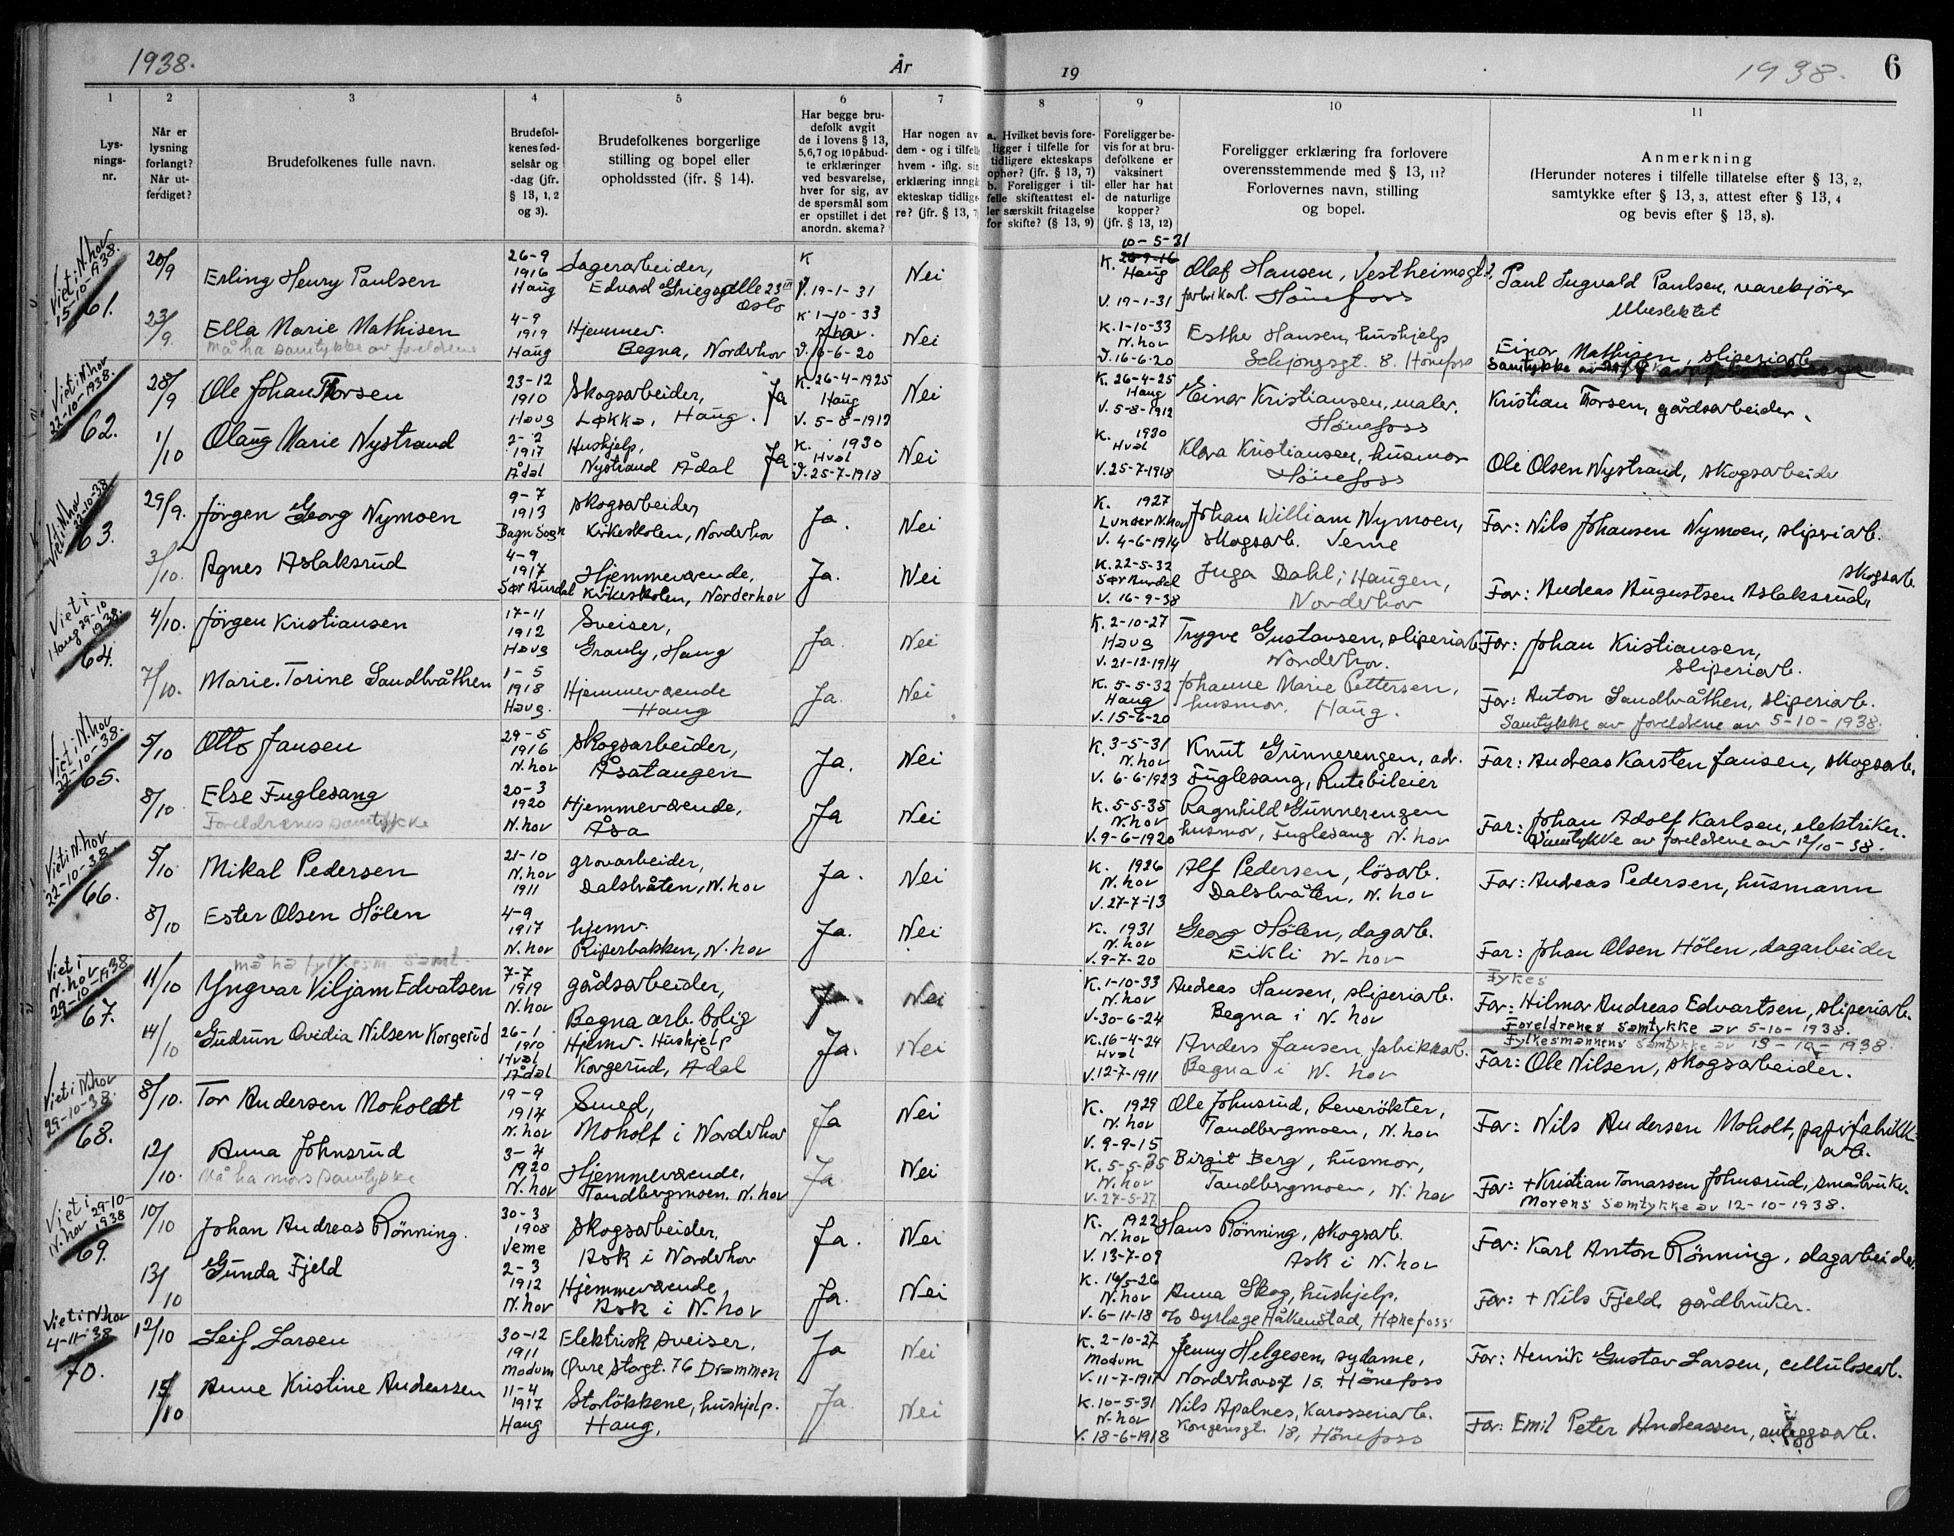 1938.
År
19
1938.
6
1
2
3
4
5
6
7
8
9
10
11
Lys-
nings-
nr.
Når er
lysning
forlangt?
Når ut-
ferdiget?
Brudefolkenes fulle navn.
Brudefol-
kenes fød-
selsår og
-dag (jfr.
§ 13, 1, 2
og 3).
Brudefolkenes borgerlige
stilling og bopel eller
opholdssted (ifr. § 14).
Har begge bru-
defolk avgit
de i lovens § 13,
5, 6, 7 og 10 påbud-
te erklæringer
ved besvarelse,
hver for sig, av
de spørsmål som
er opstillet i det
anordn. skema?
Har nogen av
dem - og i tilfelle
hvem - iflg. sin
erklæring inngå
ekteskap tidlige-
re? (jfr. § 13, 7
a. Hvilket bevis fore-
ligger i tilfelle for
tidligere ekteskaps
ophør? (jfr. § 13, 7)
b. Foreligger i til-
felle skifteattest el-
ler særskilt fritagelse
for skifte? (§ 13, 9)
Foreligger be-
vis for at bru-
defolkene er
vaksinert
eller har hat
de naturlige
kopper?
(jfr. § 13, 12)
Foreligger erklæring fra forlovere
overensstemmende med § 13, 11?
Forlovernes navn, stilling
og bopel.
Anmerkning
(Herunder noteres i tilfelle tillatelse efter § 13, 2,
samtykke efter § 13, 3, attest efter § 13, 4
og bevis efter § 13, 8).
Viet i N.hov
15-10-1938.
61.
20/9
Erling Henry Paulsen
26-9
1916
Haug
Lagerarbeider,
Edvard Griegs alle 23 III
Oslo
K
V. 19-1-31
Nei
10-5-31
K.
Haug
V. 19-1-31
Olaf Hansen, Vestheimsgt 2,
fabrikarb. Hønefoss
Paul Ingvald Paulsen, varekjører
Ubeslektet
23/9.
Ella Marie Mathisen
Må ha samtykke av foreldrene
4-9
1919
Haug
Hjemmev.
Begna, Norderhov
K 1-10-33
N.hov.
V. 16-6-20
Nei
K. 1-10-33
N.hov
V. 16-6-20
Esther Hansen, hushjelp
Schjongsgt. 8. Hønefoss
Einar Mathisen, sliperiarb.
Viet i N.hov
22-10-1938.
62.
28/9
Ole Johan Thorsen
23-12
1910
Haug
Skogsarbeider,
Løkka, Haug.
Ja
K. 26-4-1925
Haug
V. 5-8-1912
Nei
K. 26-4-25
Haug
V. 5-8-1912
Einar Kristiansen, maler.
Hønefoss
Kristian Thorsen, gårdsarbeider.
1/10
Olaug Marie Nystrand
2-2
1917
Ådal
Hushjelp,
Nystrand Ådal
Ja
K. 1930
Hval
V. 25-7-1918
Nei
K. 1930
Hval
V. 25-7-1918
Klara Kristiansen, husmor
Hønefoss
Ole Olsen Nystrand, skogsarbeider
Viet i N.hov
22-10-38
63.
29/9.
Jörgen Georg Nymoen
9-7
1913
Bagn Sogn
skogsarbeider,
Kirkeskolen, Norderhov
Ja.
Nei
K. 1927
Lunder N.hov
V. 4-6-1914
Johan William Nymoen,
skogsarb. Veme
Far: Nils Johansen Nymoen, sliperiarb.
3/10.
Agnes Aslaksrud
4-9
1917
Sør Aurdal
Hjemmeværende,
Kirkeskolen, Norderhov
Ja.
Nei
K. 22-5-32
Sør Aurdal
V. 16-9-38
Inga Dahl, Haugen,
Norderhov
Far: Andreas Augustsen Aslaksrud,
skogsarb.
Viet i
Haug 29-10
1938.
64.
4/10.
Jörgen Kristiansen
17-11
1912
Haug
Sveiser,
Granly, Haug
Ja.
Nei
K. 2-10-27
Haug
V. 21-12-1914
Trygve Gustavsen, sliperiarb.
Norderhov.
Far: Johan Kristiansen,
sliperiarb.
7/10.
Marie Torine Sandbråthen
1-5
1918
Haug.
Hjemmeværende
Haug
Ja.
Nei
K. 5-5-32
Haug
V. 15-6-20
Johanne Marie Pettersen,
husmor. Haug.
Far: Anton Sandbråthen, sliperiarb.
Samtykke av foreldrene av 5-10-1938.
Viet i N.hov
22-10-38.
65.
5/10
Otto Jansen
29-5
1916
N.hov
Skogsarbeider,
Åsatangen
Ja.
Nei
K. 3-5-31
N.hov
V. 6-6-1923
Knut Grinnerengen, adr.
Fuglesang, Rutebileier
Far: Andreas Karsten Jansen, skogsarb.
8/10
Else Fuglesang
Foreldrenes samtykke
20-3
1920
N.hov
Hjemmeværende,
Åsa
Ja
Nei
K. 5-5-35
N.hov
V. 9-6-1920
Ragnhild Gunnerengen
husmor, Fuglesang N. hov
Far: Johan Adolf Karlsen, elektriker.
Samtykke av foreldrene av 12/10-38.
Viet i N.hov
22-10-38.
66.
5/10
Mikal Pedersen
21-10
N.hov
1911
grovarbeider,
Dalsbråten, N.hov
Ja.
Nei
K. 1926
N.hov
V. 27-7-13
Alf Pedersen, lösarb.
Dalsbråten, N. hov
Far: Andreas Pedersen, husmann
8/10
Ester Olsen Hölen
4-9
1917
N.hov
hjemv.
Riperbakken, N.hov
Ja.
Nei
K. 1931
N.hov
V. 9-7-20
Georg Hölen, dagarb.
Eikli N. hov
Far: Johan Olsen Hölen, dagarbeider
Viet i
N.hov
29-10-1938
67.
11/10
må ha fylkesm samt.
Yngvar Viljam Edvatsen
7-7
1919
N.hov
gårdsarbeider,
Begna arb. bolig
Nei
K. 1-10-33
N.hov
V. 30-6-24
Andreas Hansen, sliperiarb.
Begna i N. hov
Fykes
Far: Hilmar Andreas Edvartsen, sliperiarb.
Foreldrenes samtykke av 5-10-1938.
Fylkesmannens samtykke av 13-10-1938
14/10
Gudrun Ovidia Nilsen Korgerud
26-1
1910
Hval
Ådal
Hjemv. Hushjelp
Korgerud, Ådal
Ja.
Nei
K. 16-4-24
Hval
V. 12-7-1911
Anders Jansen fabrikkarb.
Begna i N. hov
Far: Ole Nilsen, skogsarbeider.
Viet i N.hov
29-10-38.
68.
8/10.
Tor Andersen Moholdt
19-9
1914
N.hov
Smed,
Moholt i Norderhov
Ja
Nei
K. 1929
N.hov
V. 9-9-15
Ole Johnsrud, Reverökter,
Tandbergmoen, N. hov
Far: Nils Andersen Moholt, papirfabrikk-
arb.
12/10.
Anna Johnsrud
Må ha mors samtykke
3-4
1920
N.hov
Hjemmeværende,
Tandbergmoen. N. hov
Ja
Nei
K. 5-5-35
N.hov
V. 27-5-27
Birgit Berg, husmor,
Tandbergmoen, N. hov
Far: + Kristian Tomassen Johnsrud, småbruker.
Morens samtykke av 12-10-1938.
Viet i
N.hov 29-10-
1938
69.
10/10
Johan Andreas Rönning.
30-3
1908
Veme
skogsarbeider,
Ask i Norderhov
Ja.
Nei
K. 1922
N.hov
V. 13-7-09
Hans Rönning, skogsarb.
Ask i N. hov
Far: Karl Anton Rönning, dagarbeider
13/10
Gunda Fjeld
2-3
1912
N.hov
Hjemmeværende,
Ask i N. hov
Ja.
Nei
K. 16/5-26
N.hov
V. 6-11-18
Anna Skog, hushjelp,
c/o Dyrlæge Håkenstad, Hønefoss
Far: + Nils Fjeld, gårdbruker.
Viet i N.hov
4-11-38
70.
12/10
Leif Larsen
30-12
1911
Modum
Elektrisk sveiser.
Øvre Storgt. 76 Drammen
Ja
Nei
K. 2-10-27
Modum
V. 11-7-1917
Jenny Helgesen, sydame,
Norderhovsgt 15. Hönefoss
Far: Henrik Gustav Larsen, cellulosearb.
15/10
Anne Kristine Andreassen
11-4
1917
Haug
Storlökkene, hushjelp.
Haug,
Ja.
Nei
K. 10-5-31
N.hov
V. 18-6-1918
Nils Apalnes, Karosseriarb.
Kongensgt. 18, Hönefoss
Far: Emil Peter Andreassen, anleggsarb.